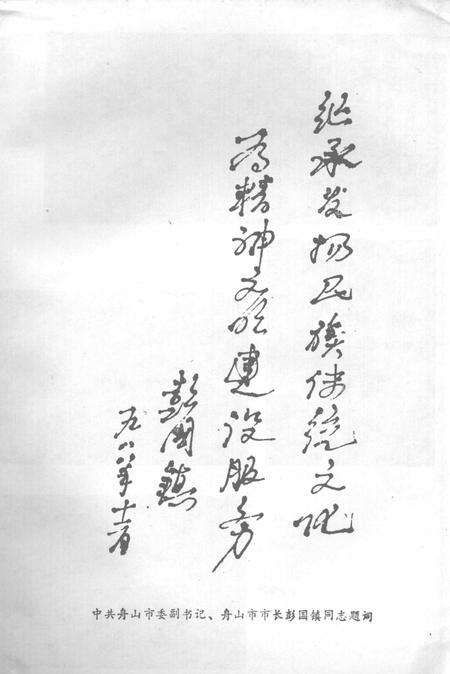 继承发扬民族传统文化
为精神文明建设服务
彭国镇
九八八年十一月
中共舟山市委副书记、舟山市市长彭国镇同志题词